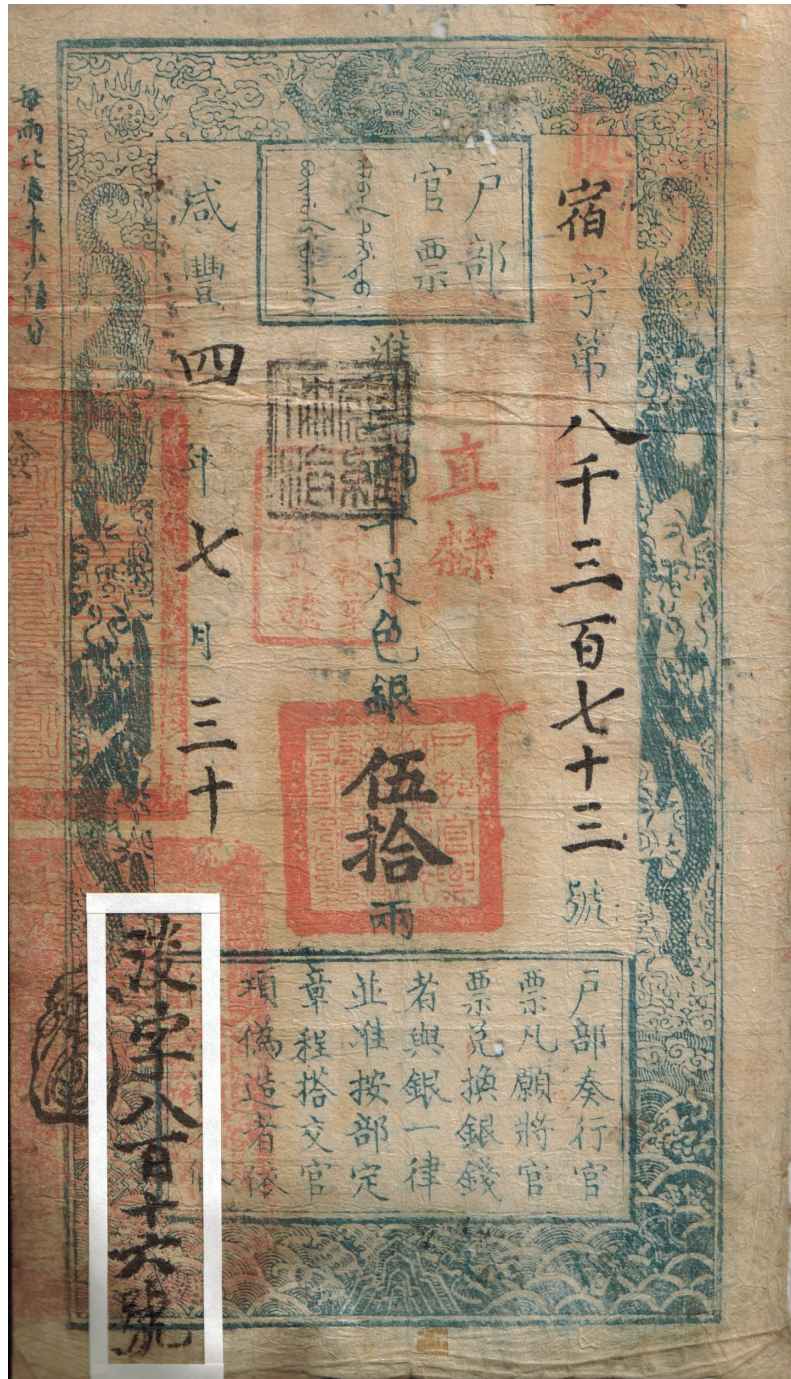 宿字第八千三百七十三號
户部
官票
準二兩平足色銀伍拾兩
直隸
咸豐四年七月三十
户部奏行官
票凡願將官
票兑換銀錢
者與銀一律
並准按部定
章程搭交官
項偽造者依
淡字八百十六號
每兩比庫平少陸分